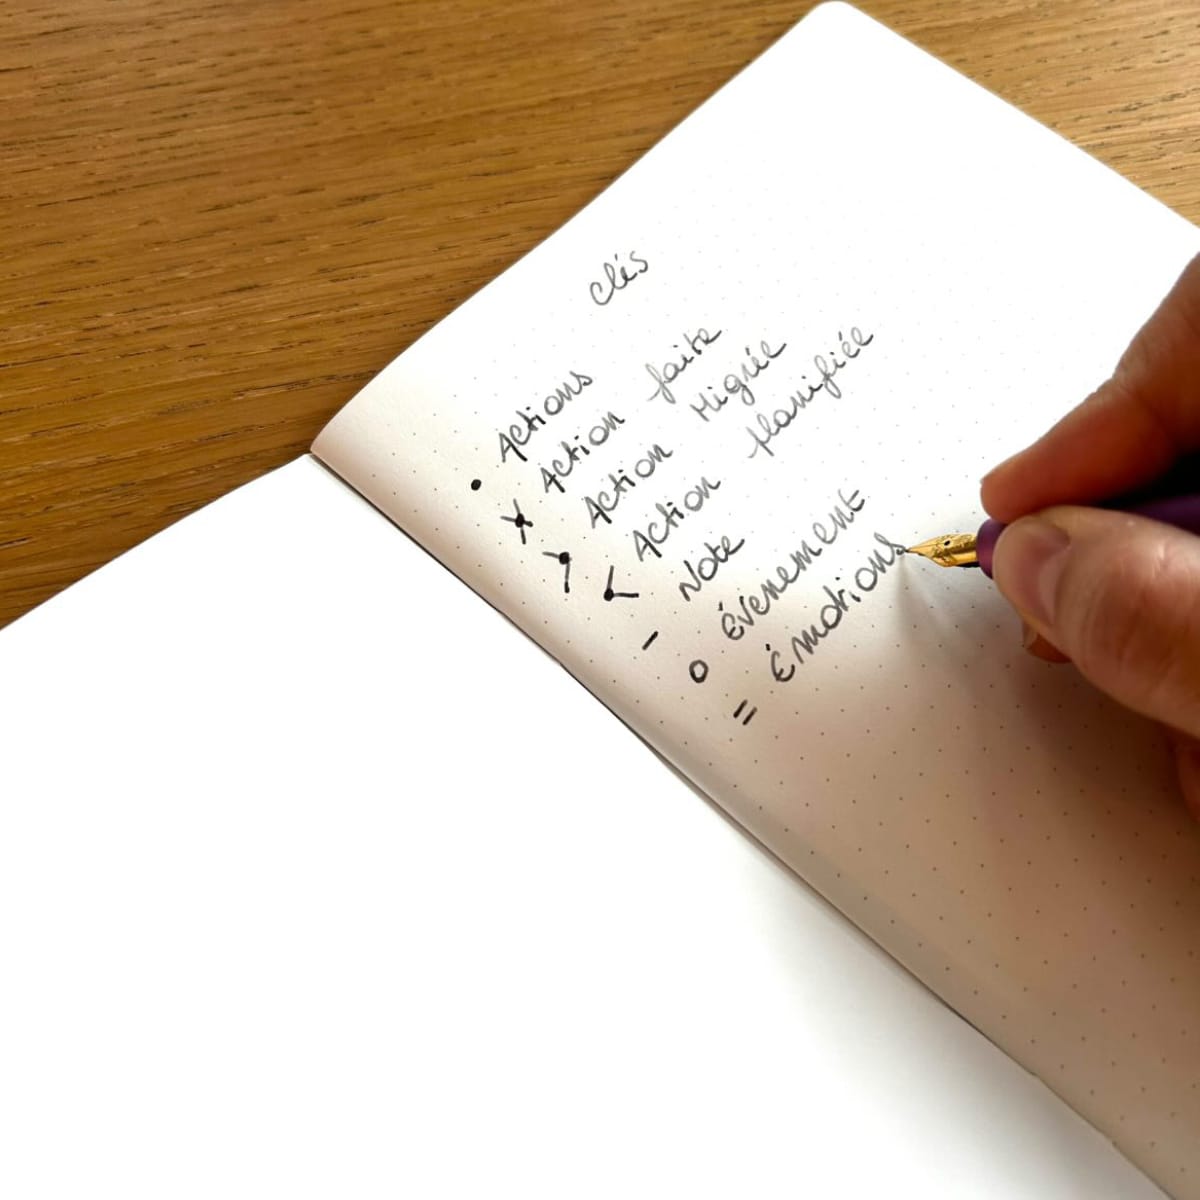 clés
• Actions
x Action faite
> Action Migrée
< Action planifiée
– Note
o Évenement
= Émotions